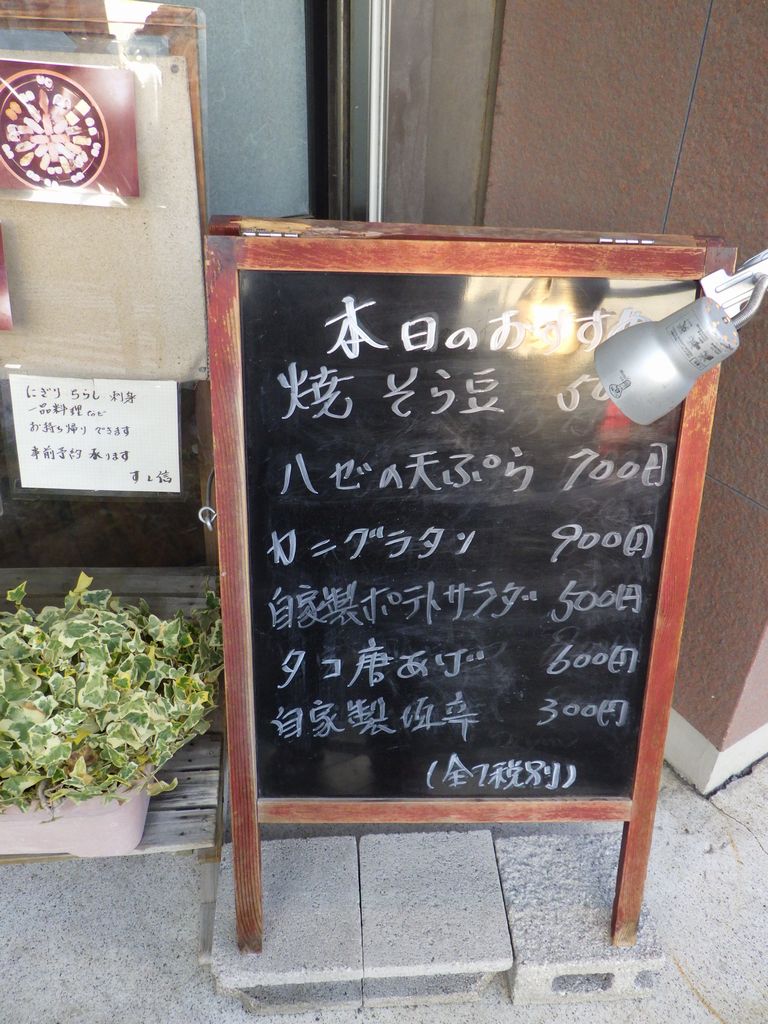 本日のおすすめ
焼 そら豆
ハゼの天ぷら 700円
カニグラタン 900円
自家製ポテトサラダ 500円
タコ唐あげ 600円
自家製塩辛 300円
(全て税別)
にぎり ちらし 刺身
一品料理など
お持ち帰り できます
事前予約 承ります
すし信